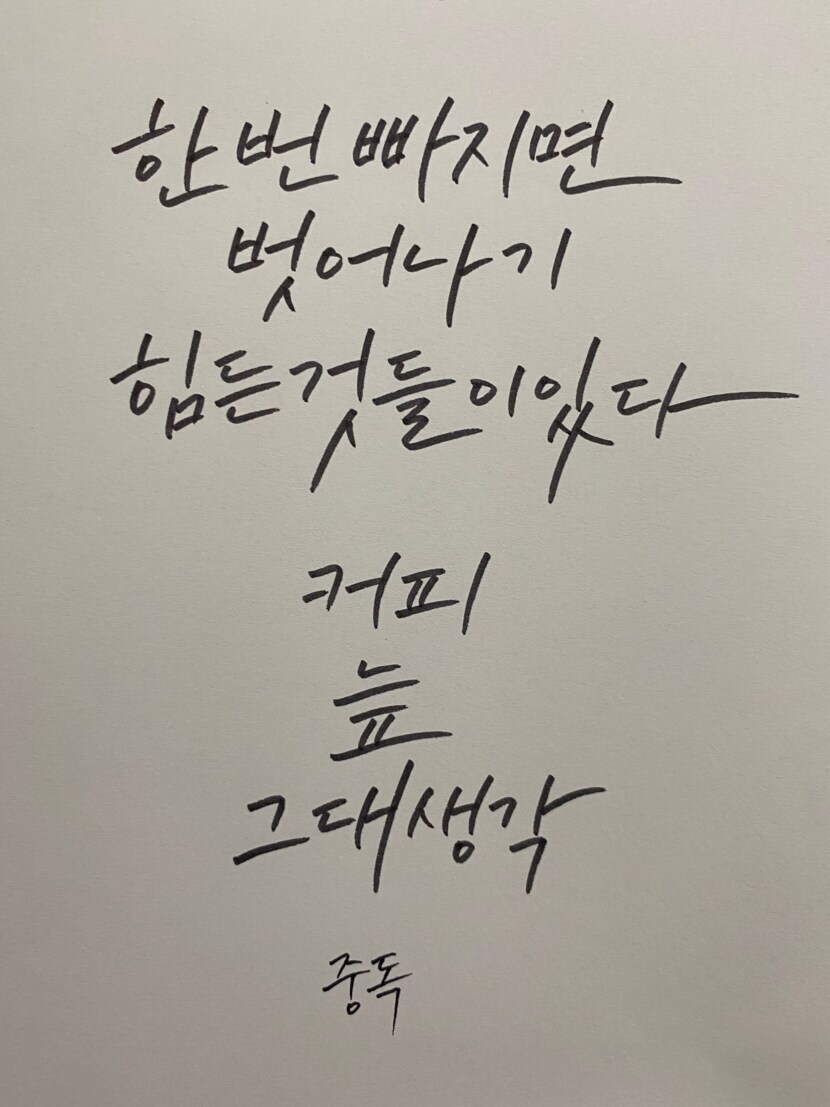 한 번 빠지면
벗어나기
힘든것들이있다
커피
늪
그대생각
중독